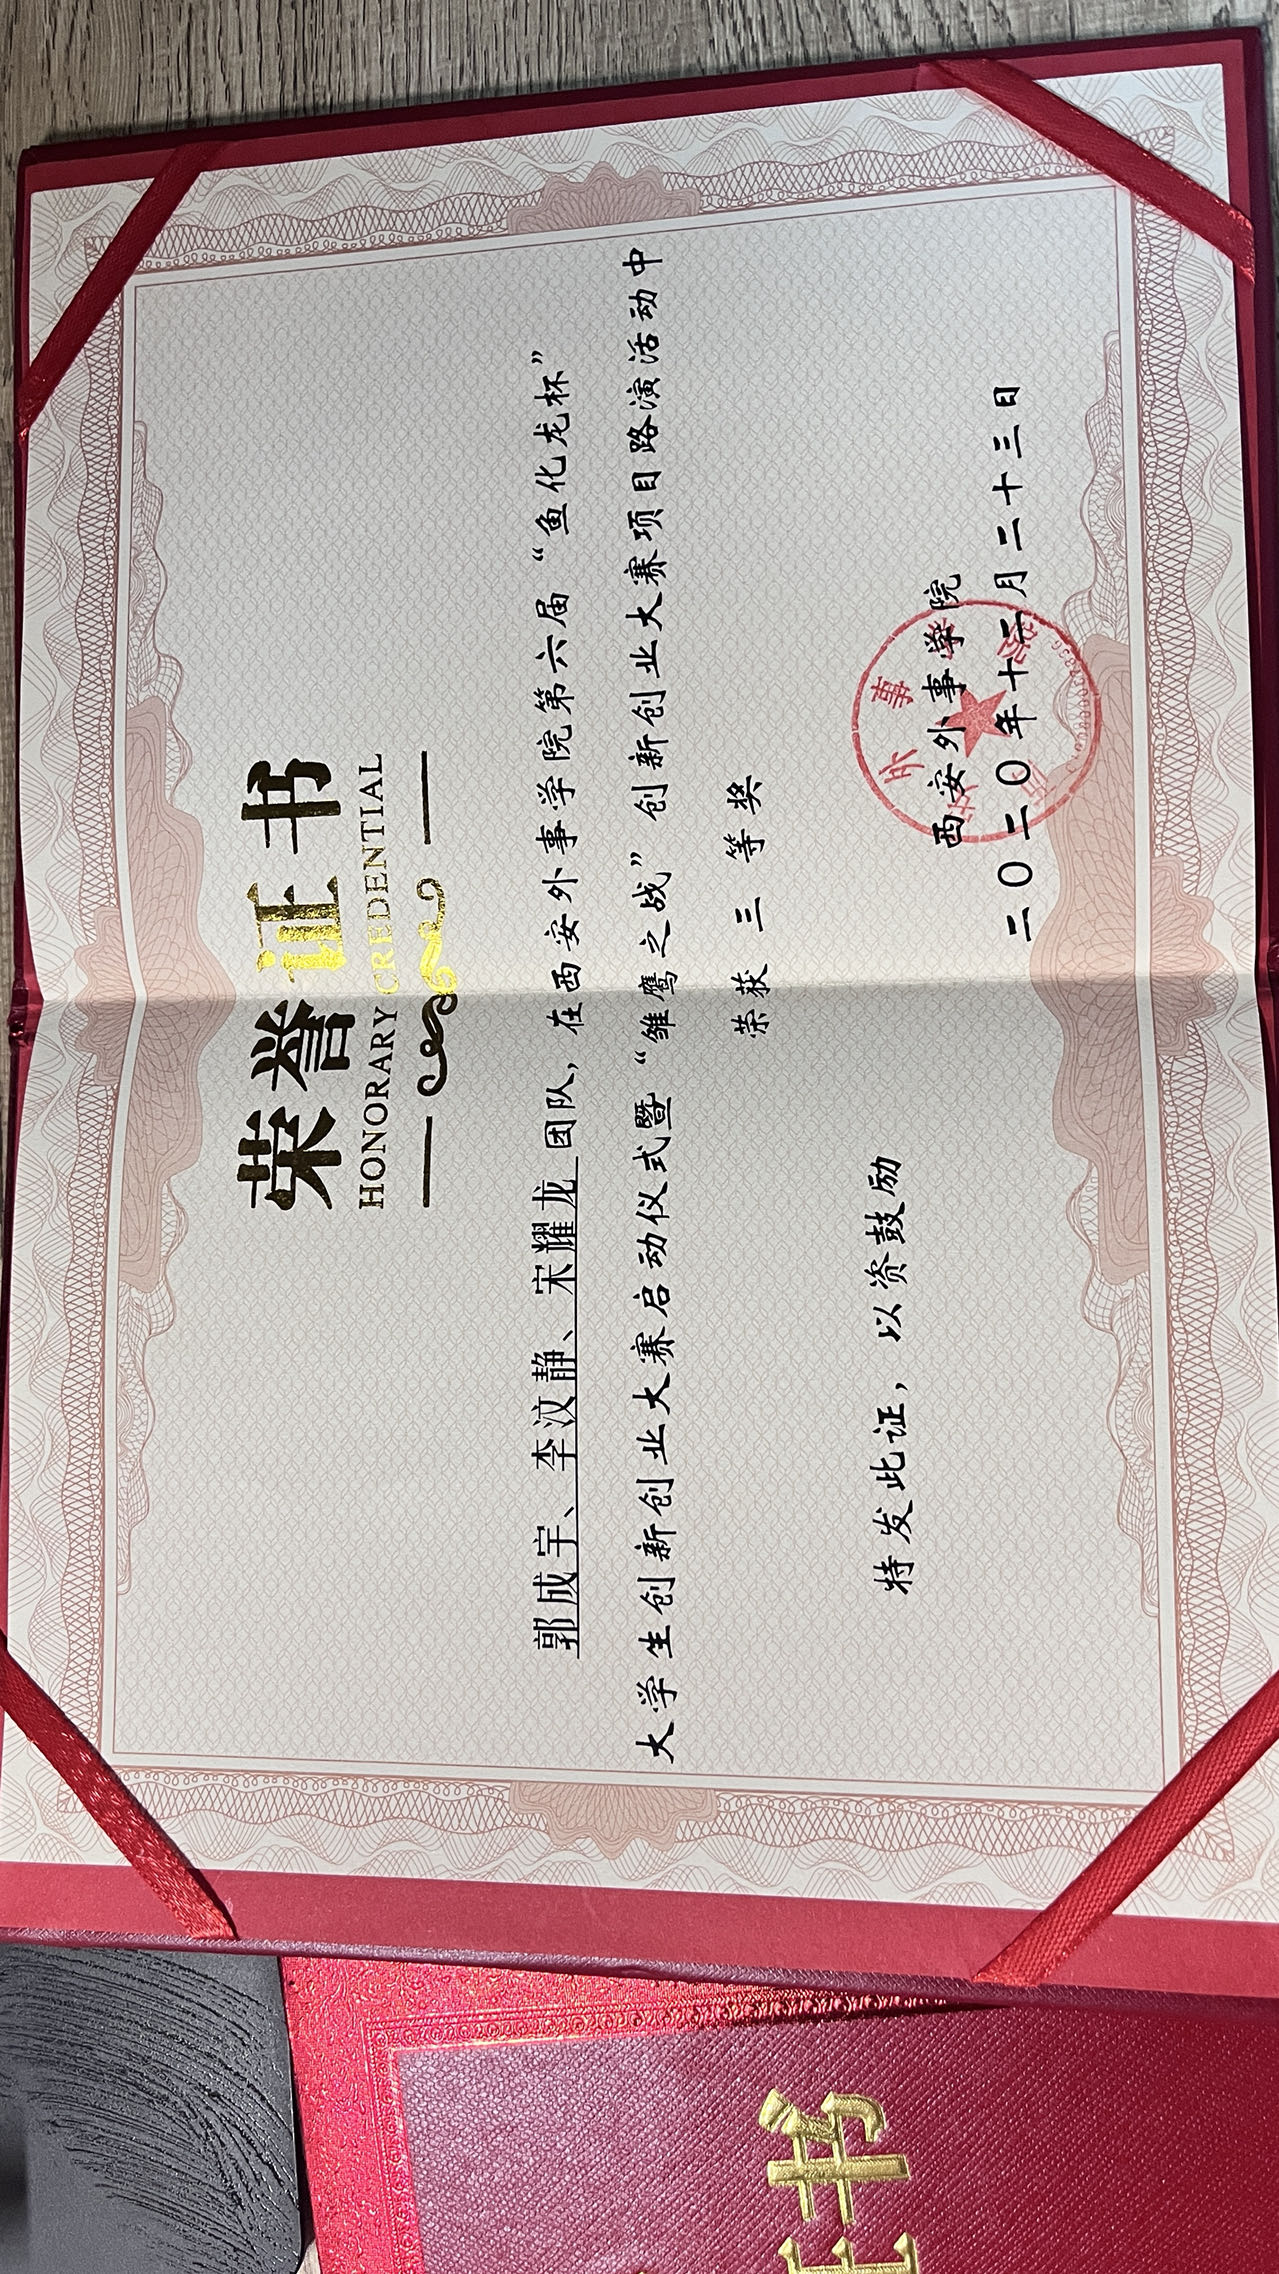 荣誉证书
HONORARY CREDENTIAL
郭成宇、李汶静、宋耀龙团队，在西安外事学院第六届“鱼化龙杯”
大学生创新创业大赛启动仪式暨“雏鹰之战”创新创业大赛项目路演活动中
荣获三等奖
特发此证，以资鼓励
西安外事学院
二〇二〇年十二月二十三日
证书